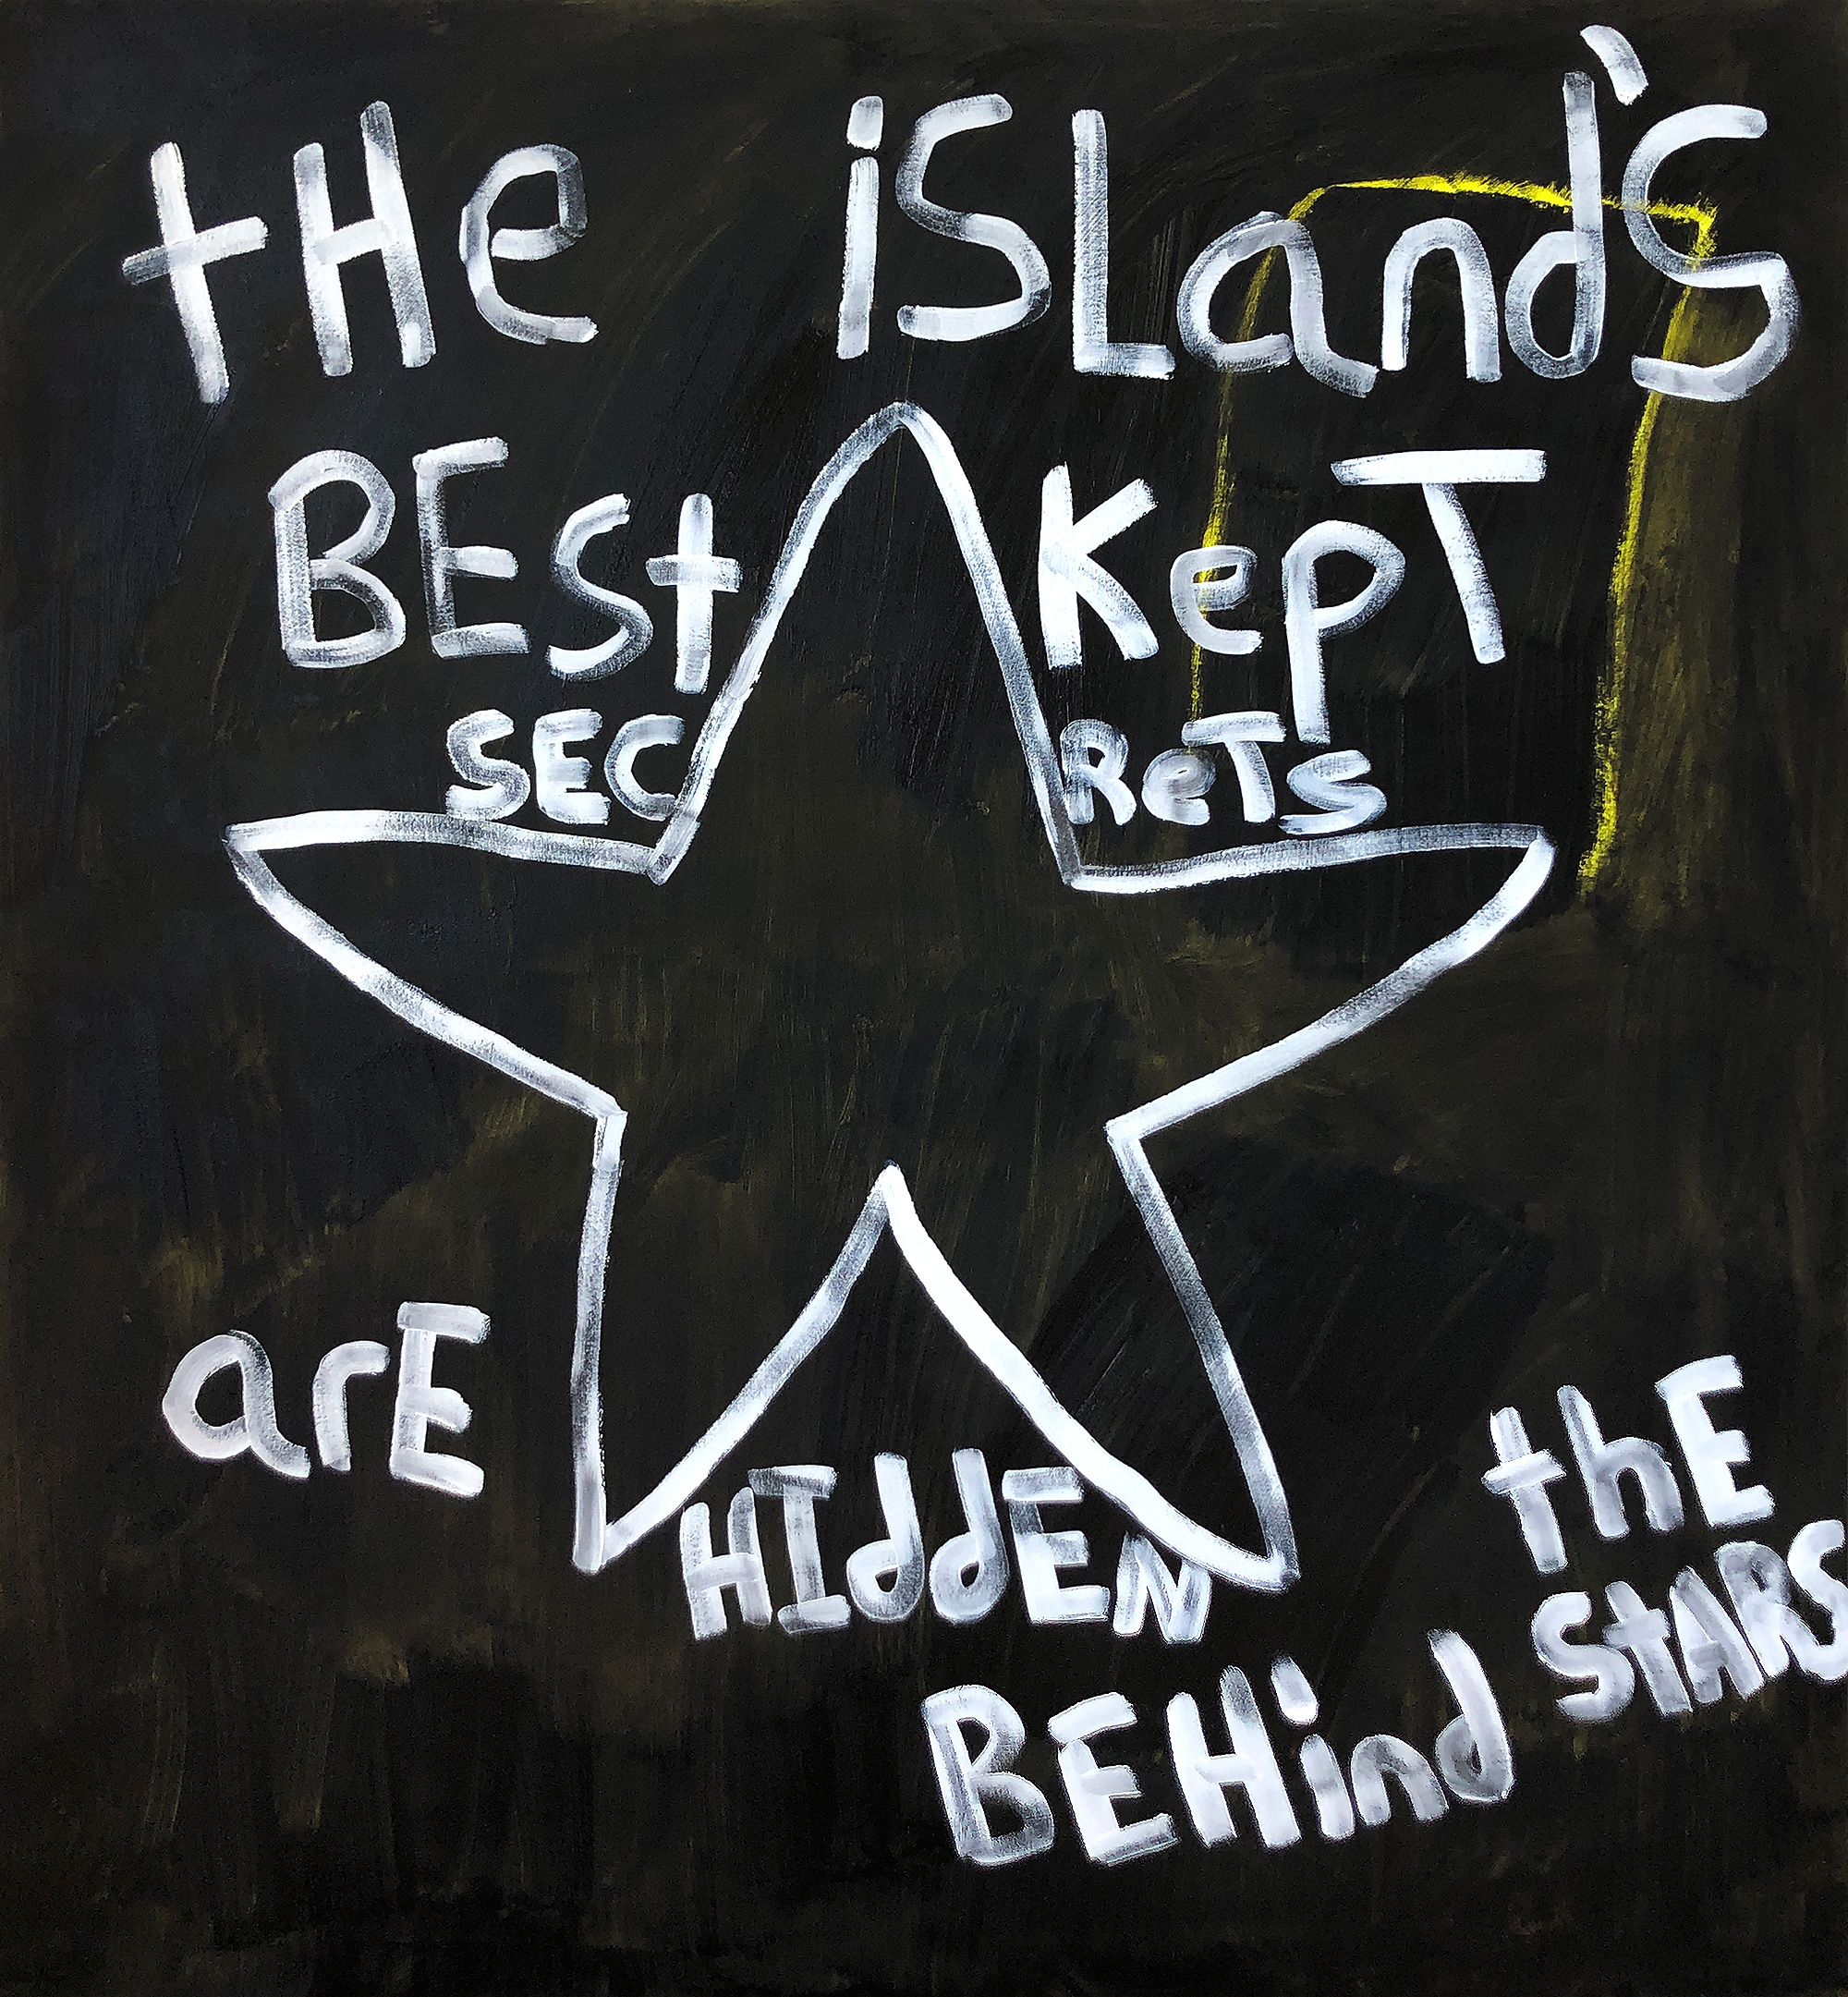 tHe iSLand's
BESt KepT
SECReTS
arE
HIddEN
BEHind
thE
StARS